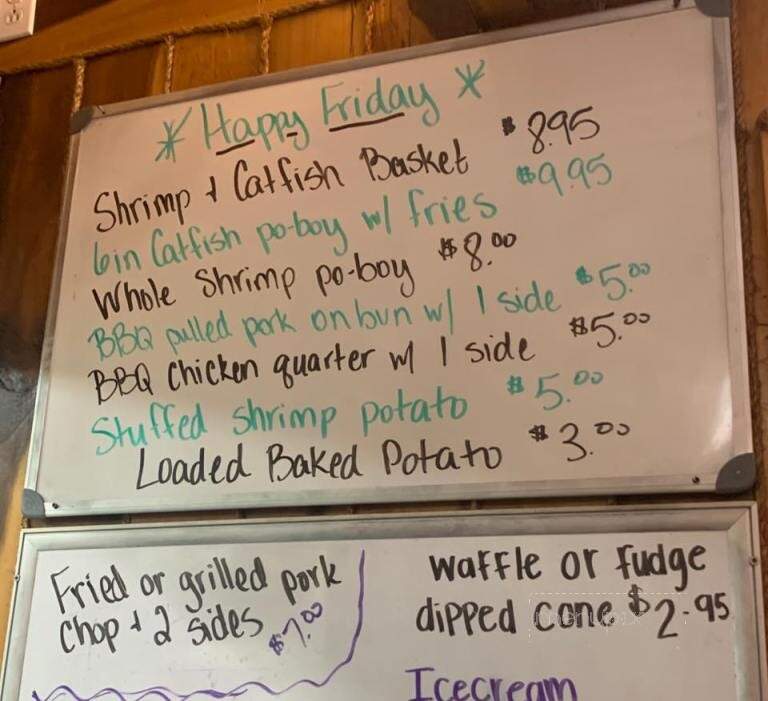 * Happy Friday *
Shrimp & Catfish Basket $8.95
6in Catfish po-boy w/ fries $9.95
Whole Shrimp po-boy $8.00
BBQ pulled pork on bun w/ 1 side $5.00
BBQ Chicken quarter w/ 1 side $5.00
Stuffed shrimp potato $5.00
Loaded Baked Potato $3.00
Fried or grilled pork
chop & 2 sides $7.00
waffle or fudge
dipped cone $2.95
Icecream